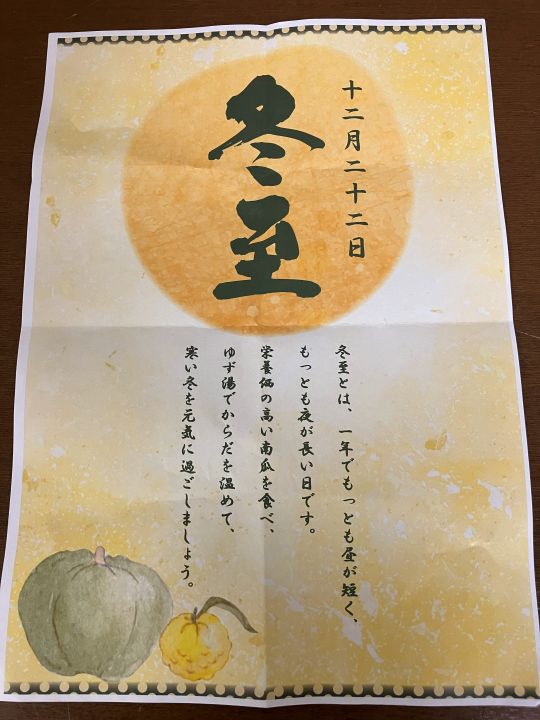 十二月二十二日
冬至
冬至とは、一年でもっとも昼が短く、
もっとも夜が長い日です。
栄養価の高い南瓜を食べ、
ゆず湯でからだを温めて、
寒い冬を元気に過ごしましょう。